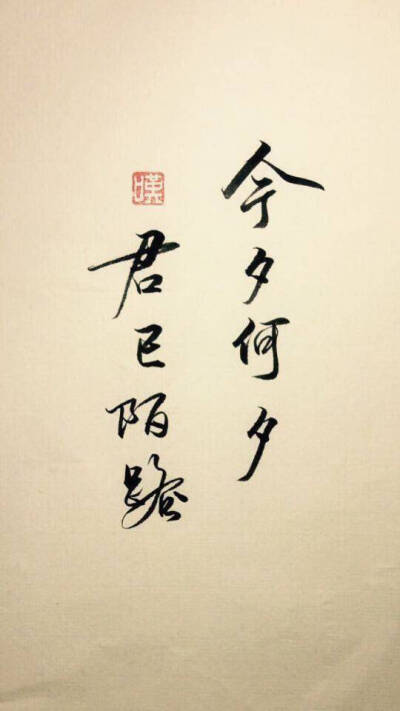 今夕何夕
君已陌路
嘆